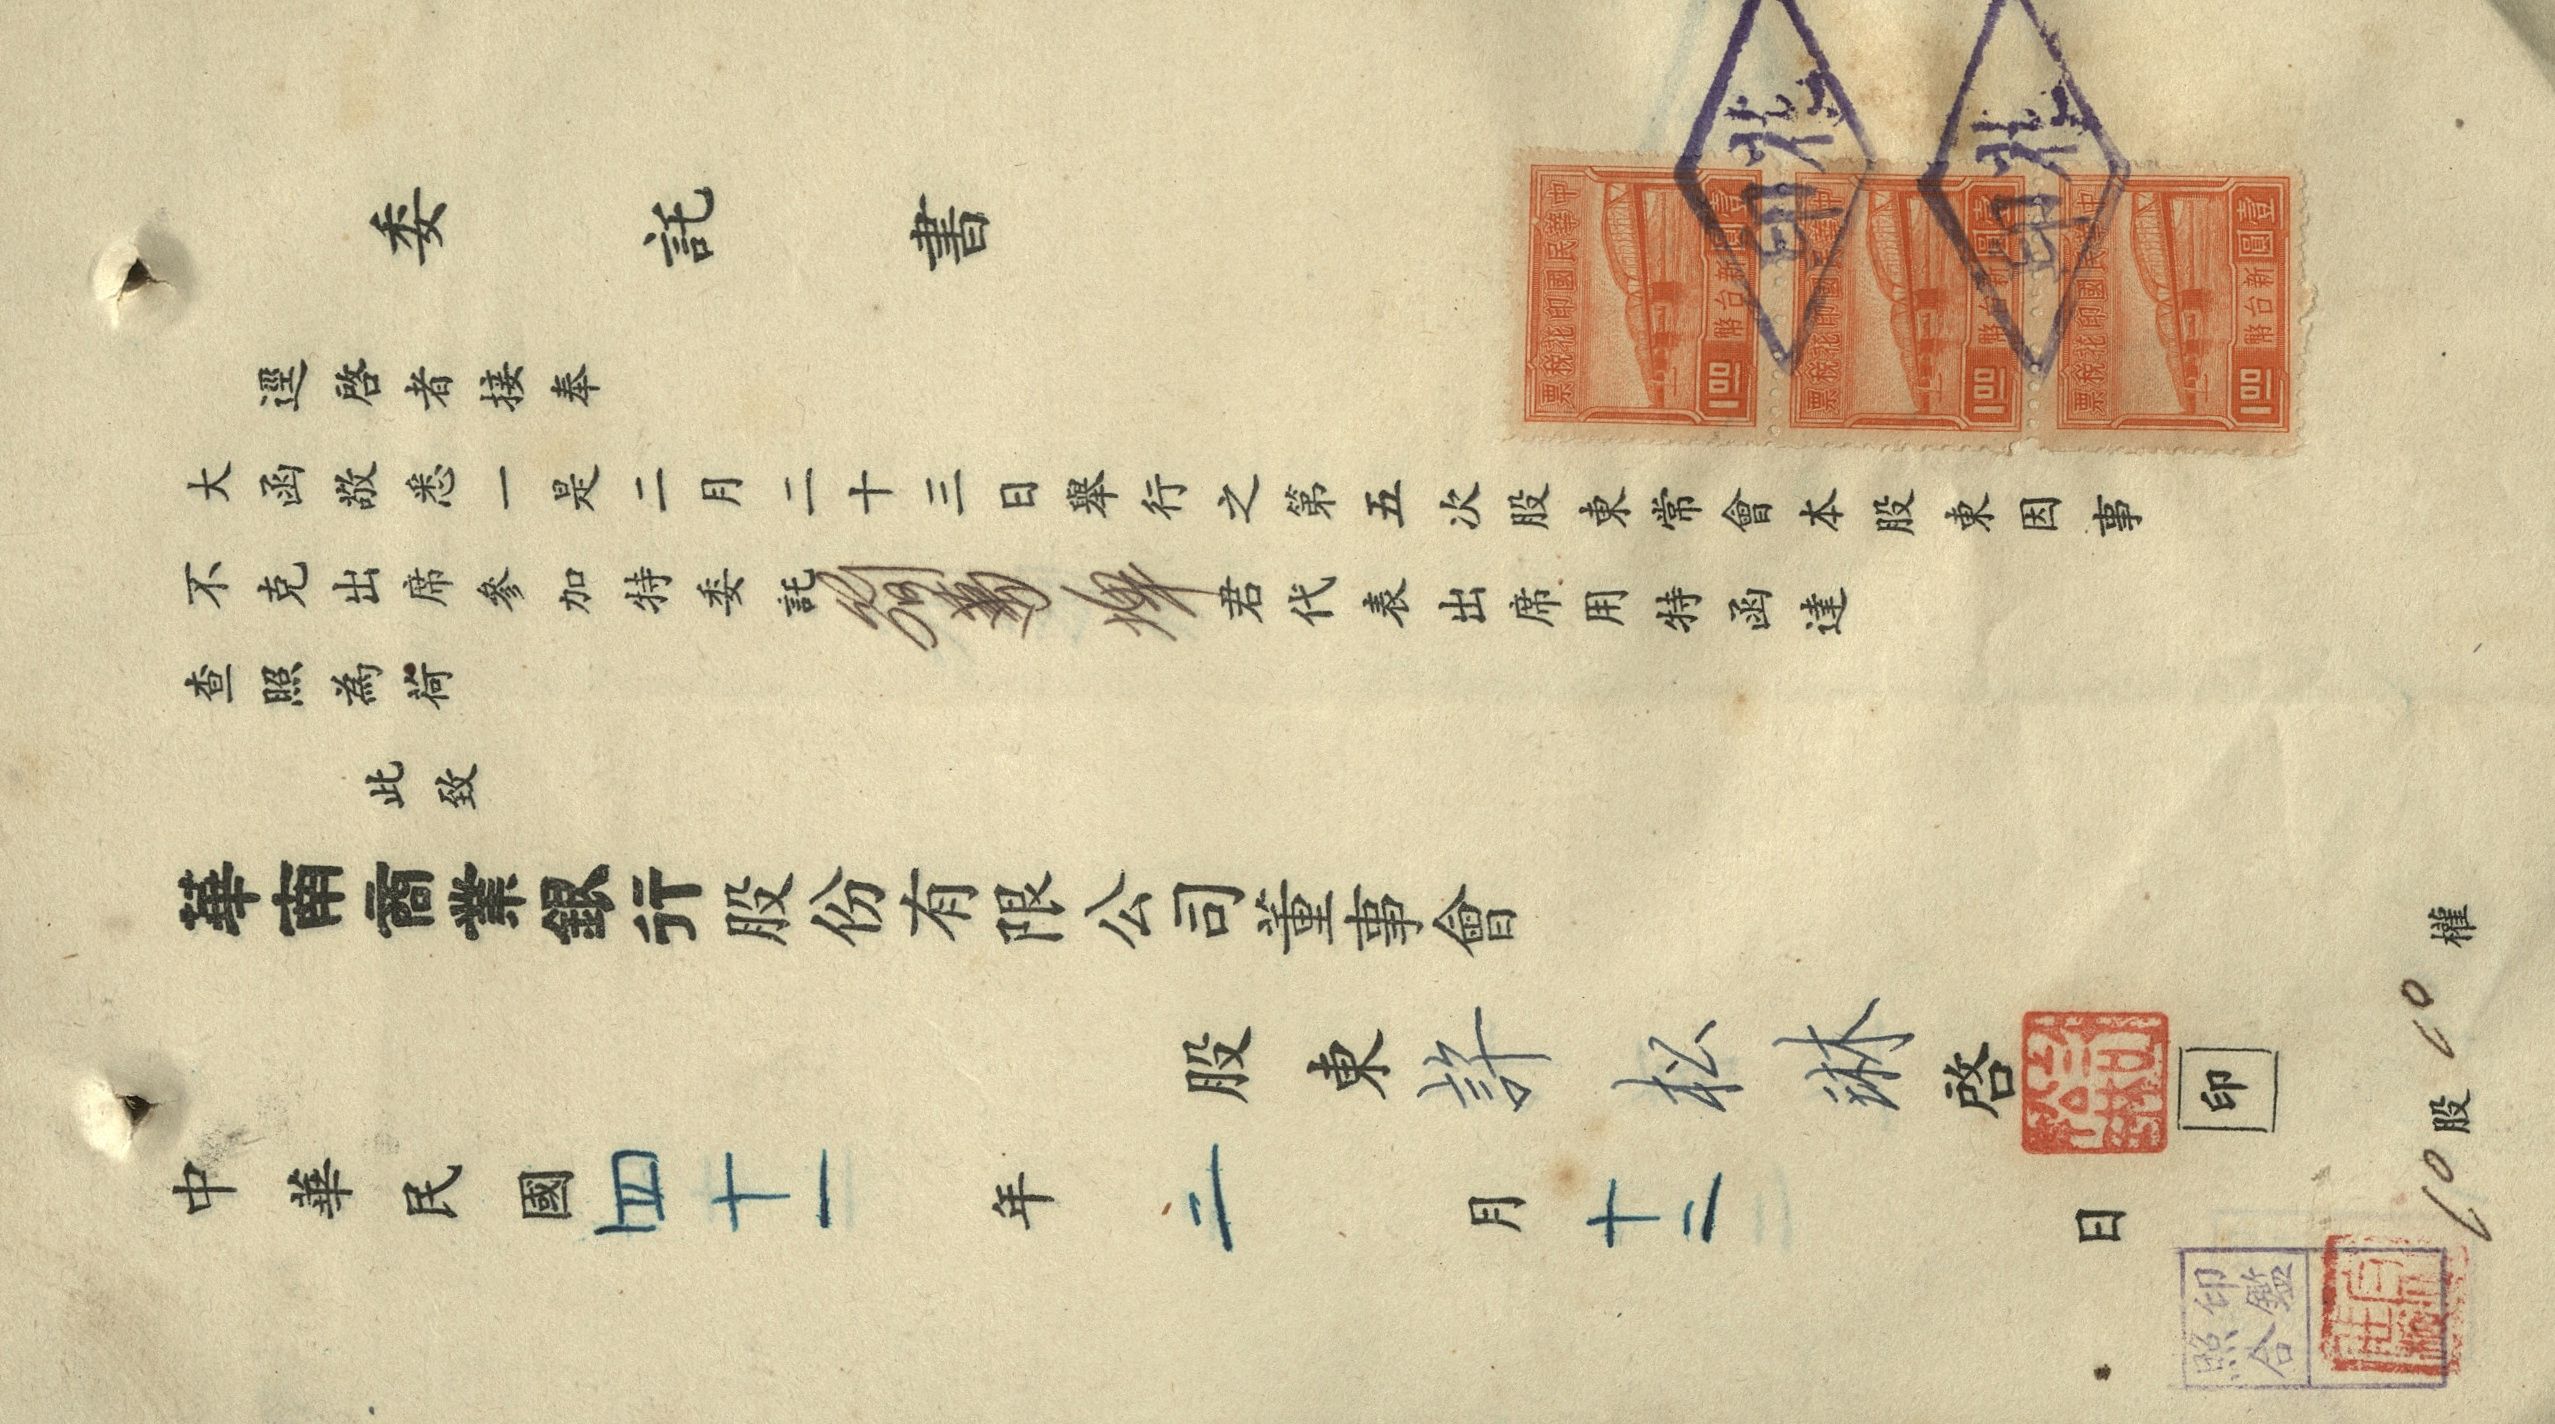 委託書
逕啓者接奉
大函敬悉一是二月二十三日舉行之第五次股東常會本股東因事
不克出席參加特委託劉燾煒君代表出席用特函達
查照為荷
此致
華南商業銀行股份有限公司董事會
股東許松琳啓
印
中華民國四十一年二月十二日
10股10權
印鑑照合
中華民國印花稅票
壹圓新台幣
1.00
中華民國印花稅票
壹圓新台幣
1.00
中華民國印花稅票
壹圓新台幣
1.00